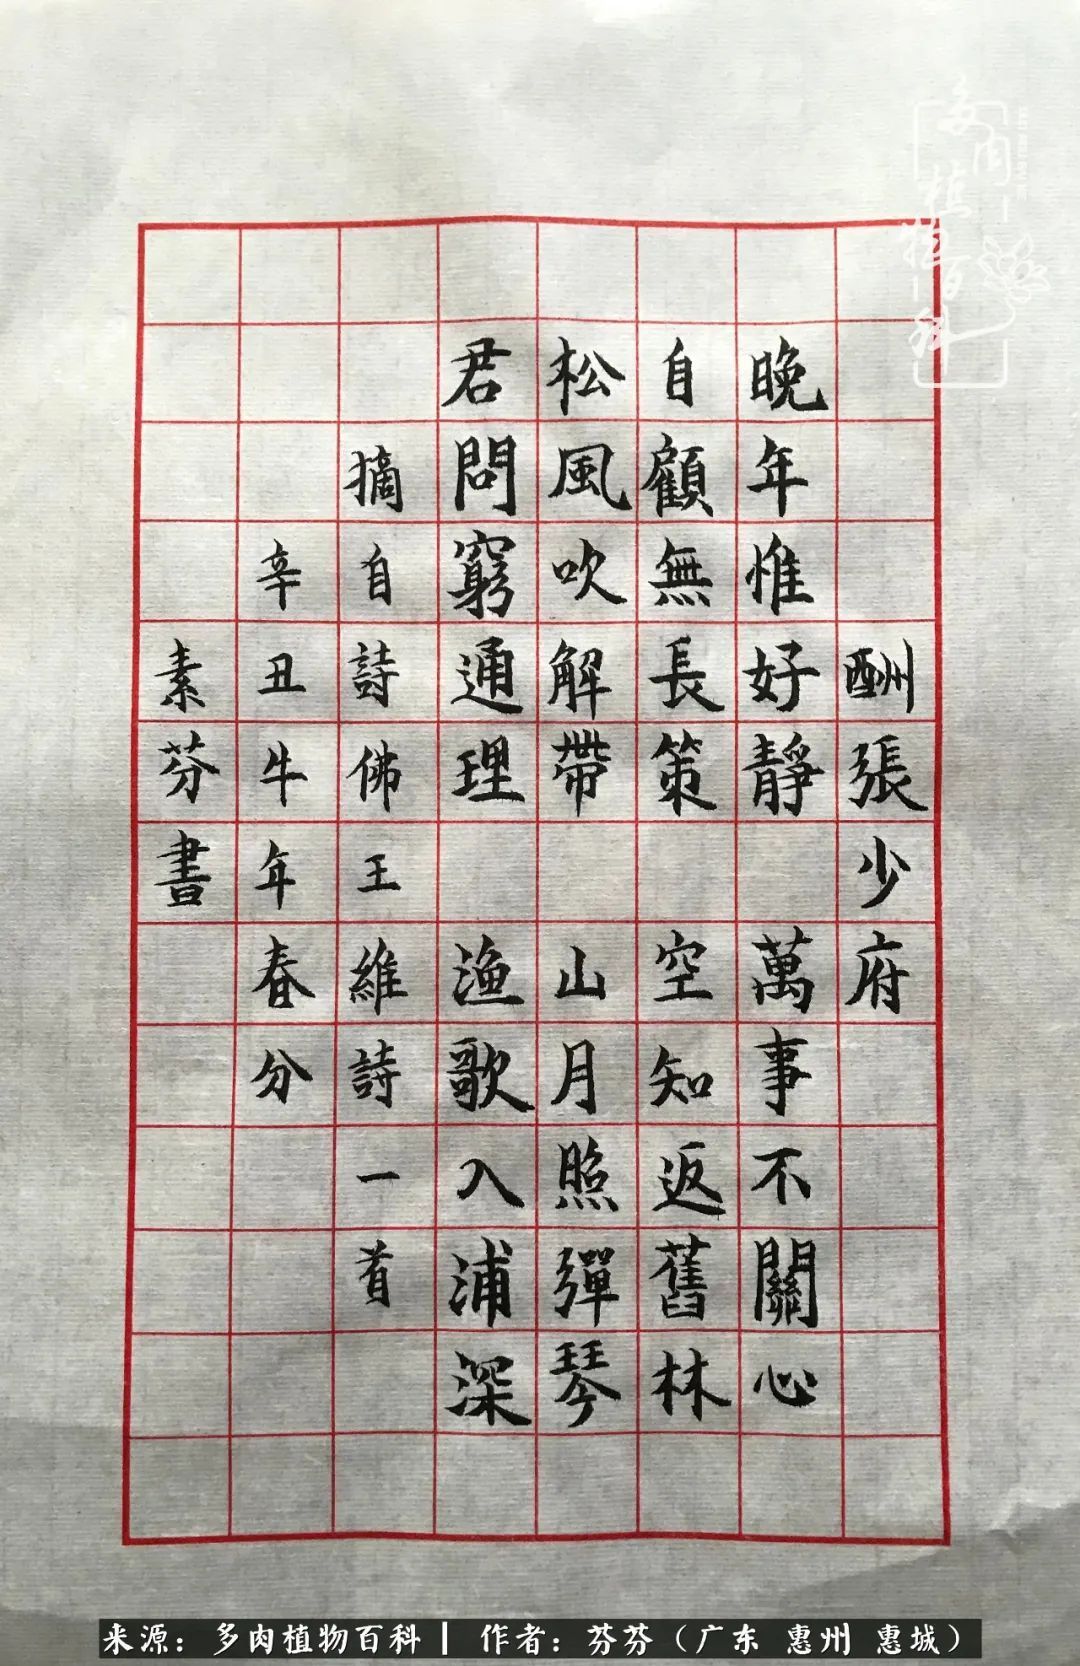 酬張少府
晚年惟好靜 萬事不關心
自顧無長策 空知返舊林
松風吹解帶 山月照彈琴
君問窮通理 渔歌入浦深
摘自詩佛王維詩一首
辛丑牛年春分
素芬書
多肉植物百科
来源：多肉植物百科 | 作者：芬芬（广东 惠州 惠城）